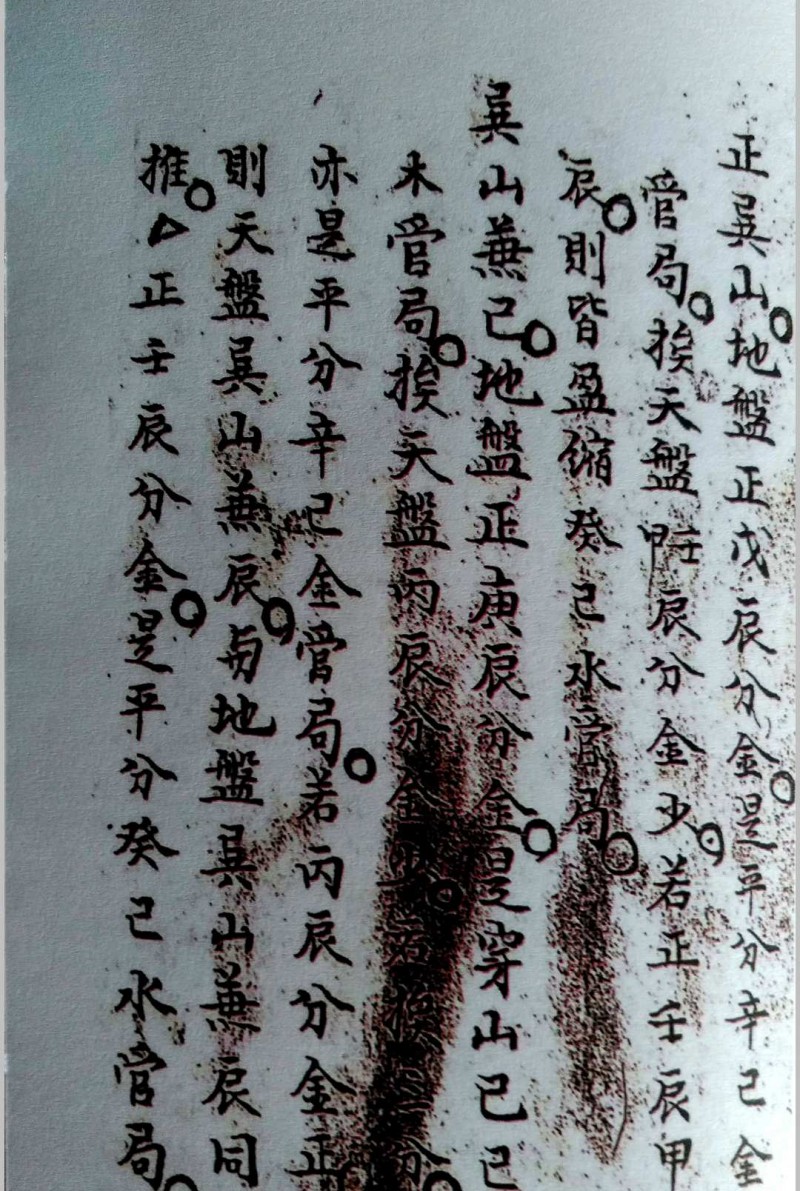 正巽山地盤正戊辰分金是平分辛己金
管局挨天盤甲壬辰分金少若正壬辰甲
辰則皆盈縮癸己水管局
巽山蕪己地盤正庚辰分金是穿山己己
木管局挨天盤丙辰分金少若挨三分
亦是平分辛己金管局若丙辰分金正
則天盤巽山蕪辰与地盤巽山蕪辰同
推△正壬辰分金是平分癸己水管局